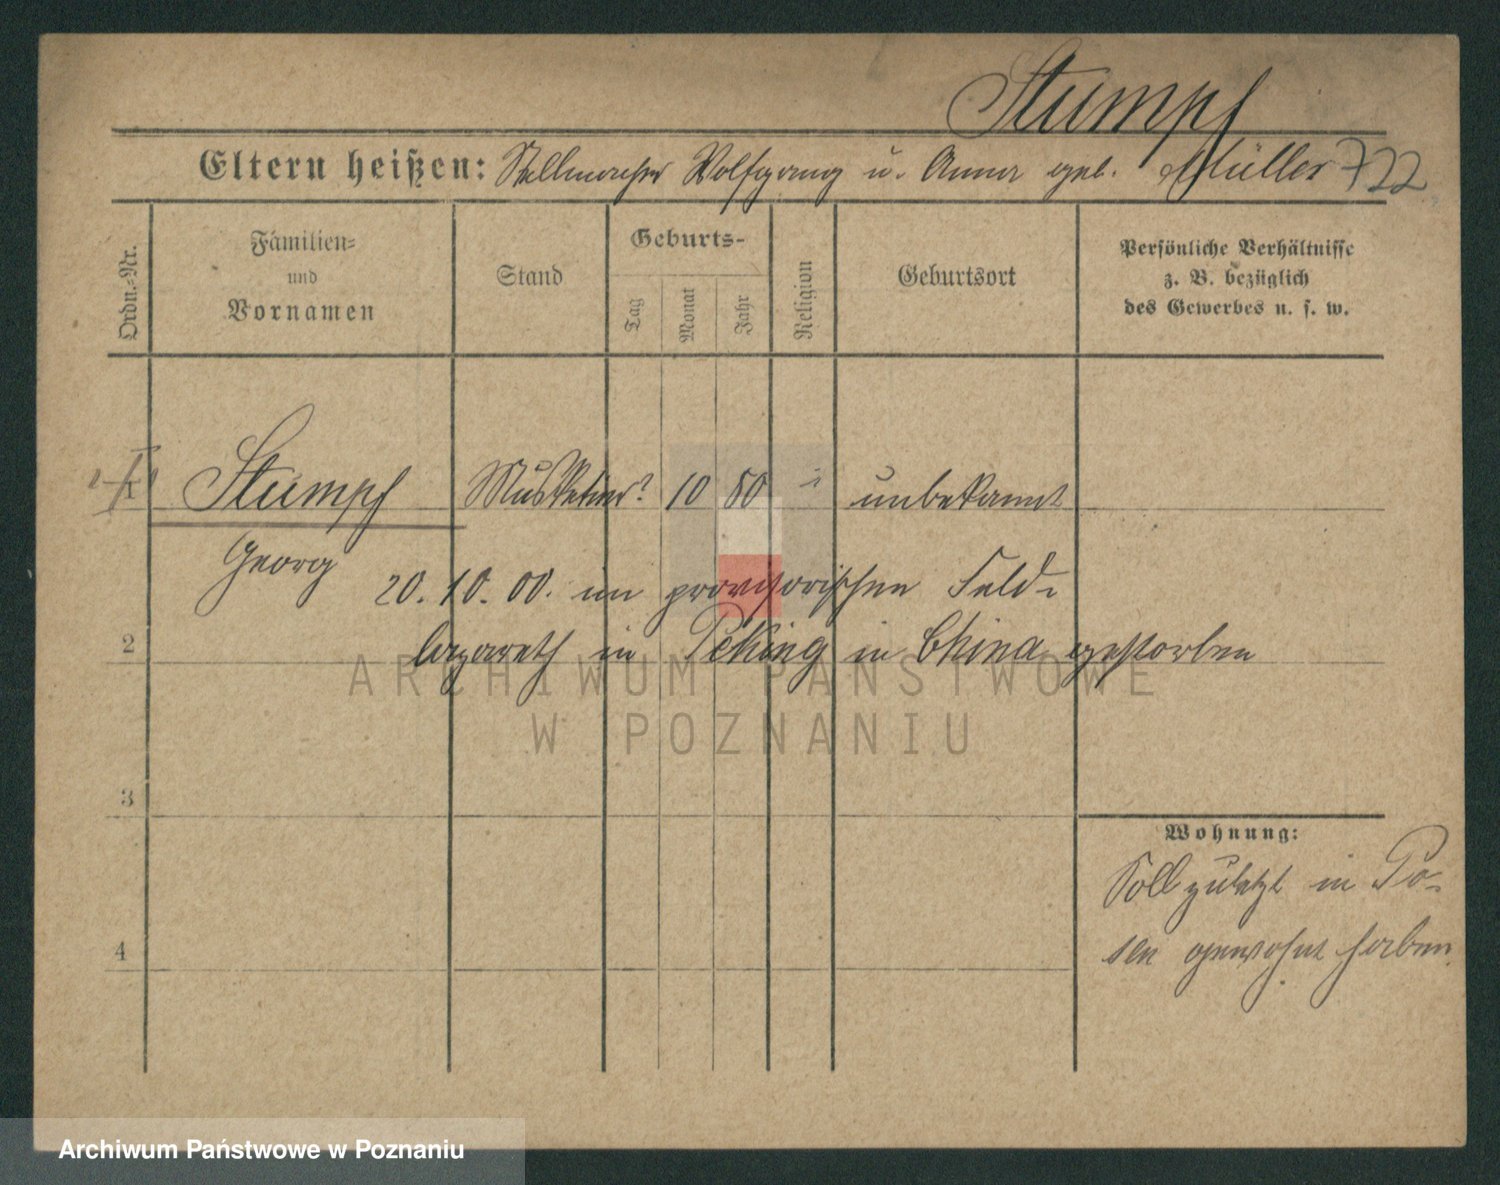 Stumpf
Eltern heißen: Stellmacher Wolfgang u. Anna geb. Müller 722
Ordn.-Nr.
Familien-
und
Vornamen
Stand
Geburts-
Tag
Monat
Jahr
Religion
Geburtsort
Persönliche Verhältnisse
z. B. bezüglich
des Gewerbes u. s. w.
1 Stumpf Musketier ? 10 80 unbekannt
Georg
20. 10. 00. im provisorischen Feld-
2 lazareth in Peking in China gestorben
ARCHIWUM PAŃSTWOWE
W POZNANIU
3
Wohnung:
Soll zuletzt in Po-
4 sen gewohnt haben.
Archiwum Państwowe w Poznaniu